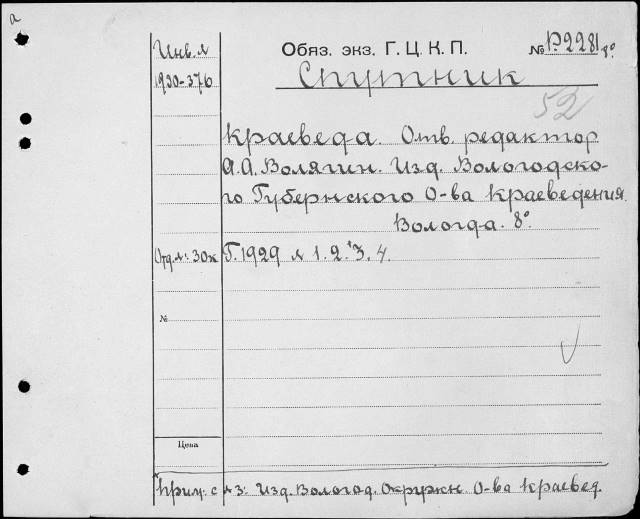 а
Инв. л
1930-376
Обяз. экз. Г. Ц. К. П.
№ Р2281 8°
Спутник
52
Краеведа. Отв. редактор
А.А. Волягин. Изд. Вологодско-
го Губернского О-ва Краеведения.
Вологда. 8°.
Отд. л: 30к
Г. 1929 л 1. 2. 3. 4.
№
Цена
Прим: с л 3: Изд. Вологод. Окружн. О-ва Краевед.